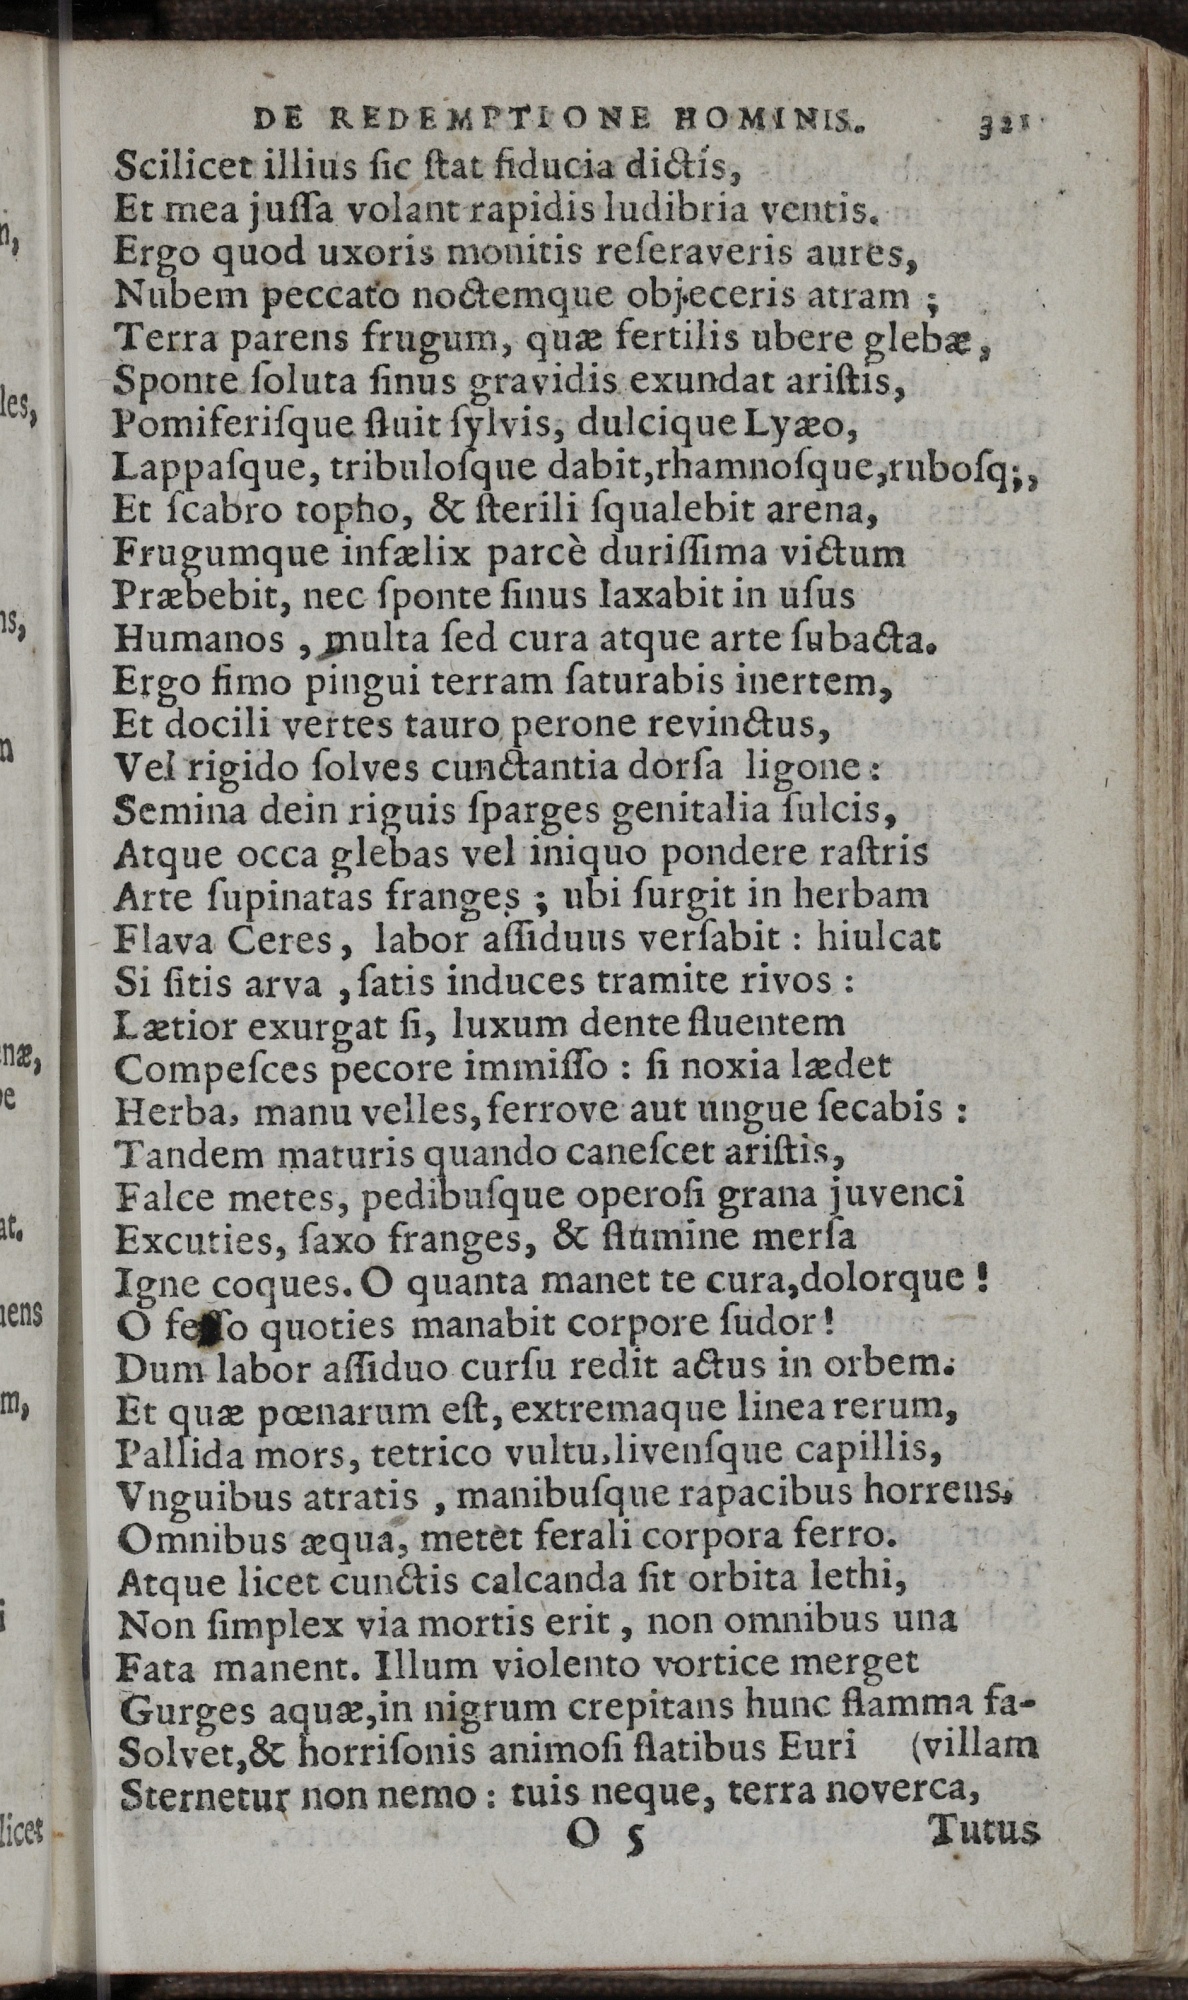 DE REDEMPTIONE HOMINIS. 321
Scilicet illius ſic ſtat fiducia dictis,
Et mea juſſa volant rapidis ludibria ventis.
Ergo quod uxoris monitis reſeraveris aures,
Nubem peccato noctemque objeceris atram ;
Terra parens frugum, quæ fertilis ubere glebæ,
Sponte ſoluta ſinus gravidis exundat ariſtis,
Pomiferiſque fluit ſylvis, dulcique Lyæo,
Lappaſque, tribuloſque dabit,rhamnoſque,ruboſq;,
Et ſcabro topho, & ſterili ſqualebit arena,
Frugumque infælix parcè duriſſima victum
Præbebit, nec ſponte ſinus laxabit in uſus
Humanos , multa ſed cura atque arte ſubacta.
Ergo fimo pingui terram ſaturabis inertem,
Et docili vertes tauro perone revinctus,
Vel rigido ſolves cunctantia dorſa ligone :
Semina dein riguis ſparges genitalia ſulcis,
Atque occa glebas vel iniquo pondere raſtris
Arte ſupinatas franges ; ubi ſurgit in herbam
Flava Ceres, labor aſſiduus verſabit : hiulcat
Si ſitis arva , ſatis induces tramite rivos :
Lætior exurgat ſi, luxum dente fluentem
Compeſces pecore immiſſo : ſi noxia lædet
Herba, manu velles, ferrove aut ungue ſecabis :
Tandem maturis quando caneſcet ariſtis,
Falce metes, pedibuſque operoſi grana juvenci
Excuties, ſaxo franges, & flumine merſa
Igne coques. O quanta manet te cura,dolorque !
O feſſo quoties manabit corpore ſudor!
Dum labor aſſiduo curſu redit actus in orbem.
Et quæ pœnarum eſt, extremaque linea rerum,
Pallida mors, tetrico vultu,livenſque capillis,
Vnguibus atratis , manibuſque rapacibus horrens,
Omnibus æqua, metet ferali corpora ferro.
Atque licet cunctis calcanda ſit orbita lethi,
Non ſimplex via mortis erit , non omnibus una
Fata manent. Illum violento vortice merget
Gurges aquæ,in nigrum crepitans hunc flamma fa-
Solvet,& horriſonis animoſi flatibus Euri (villam
Sternetur non nemo : tuis neque, terra noverca,
O 5 Tutus
n,
les,
ns,
n
næ,
e
at.
nens
m,
i
licet